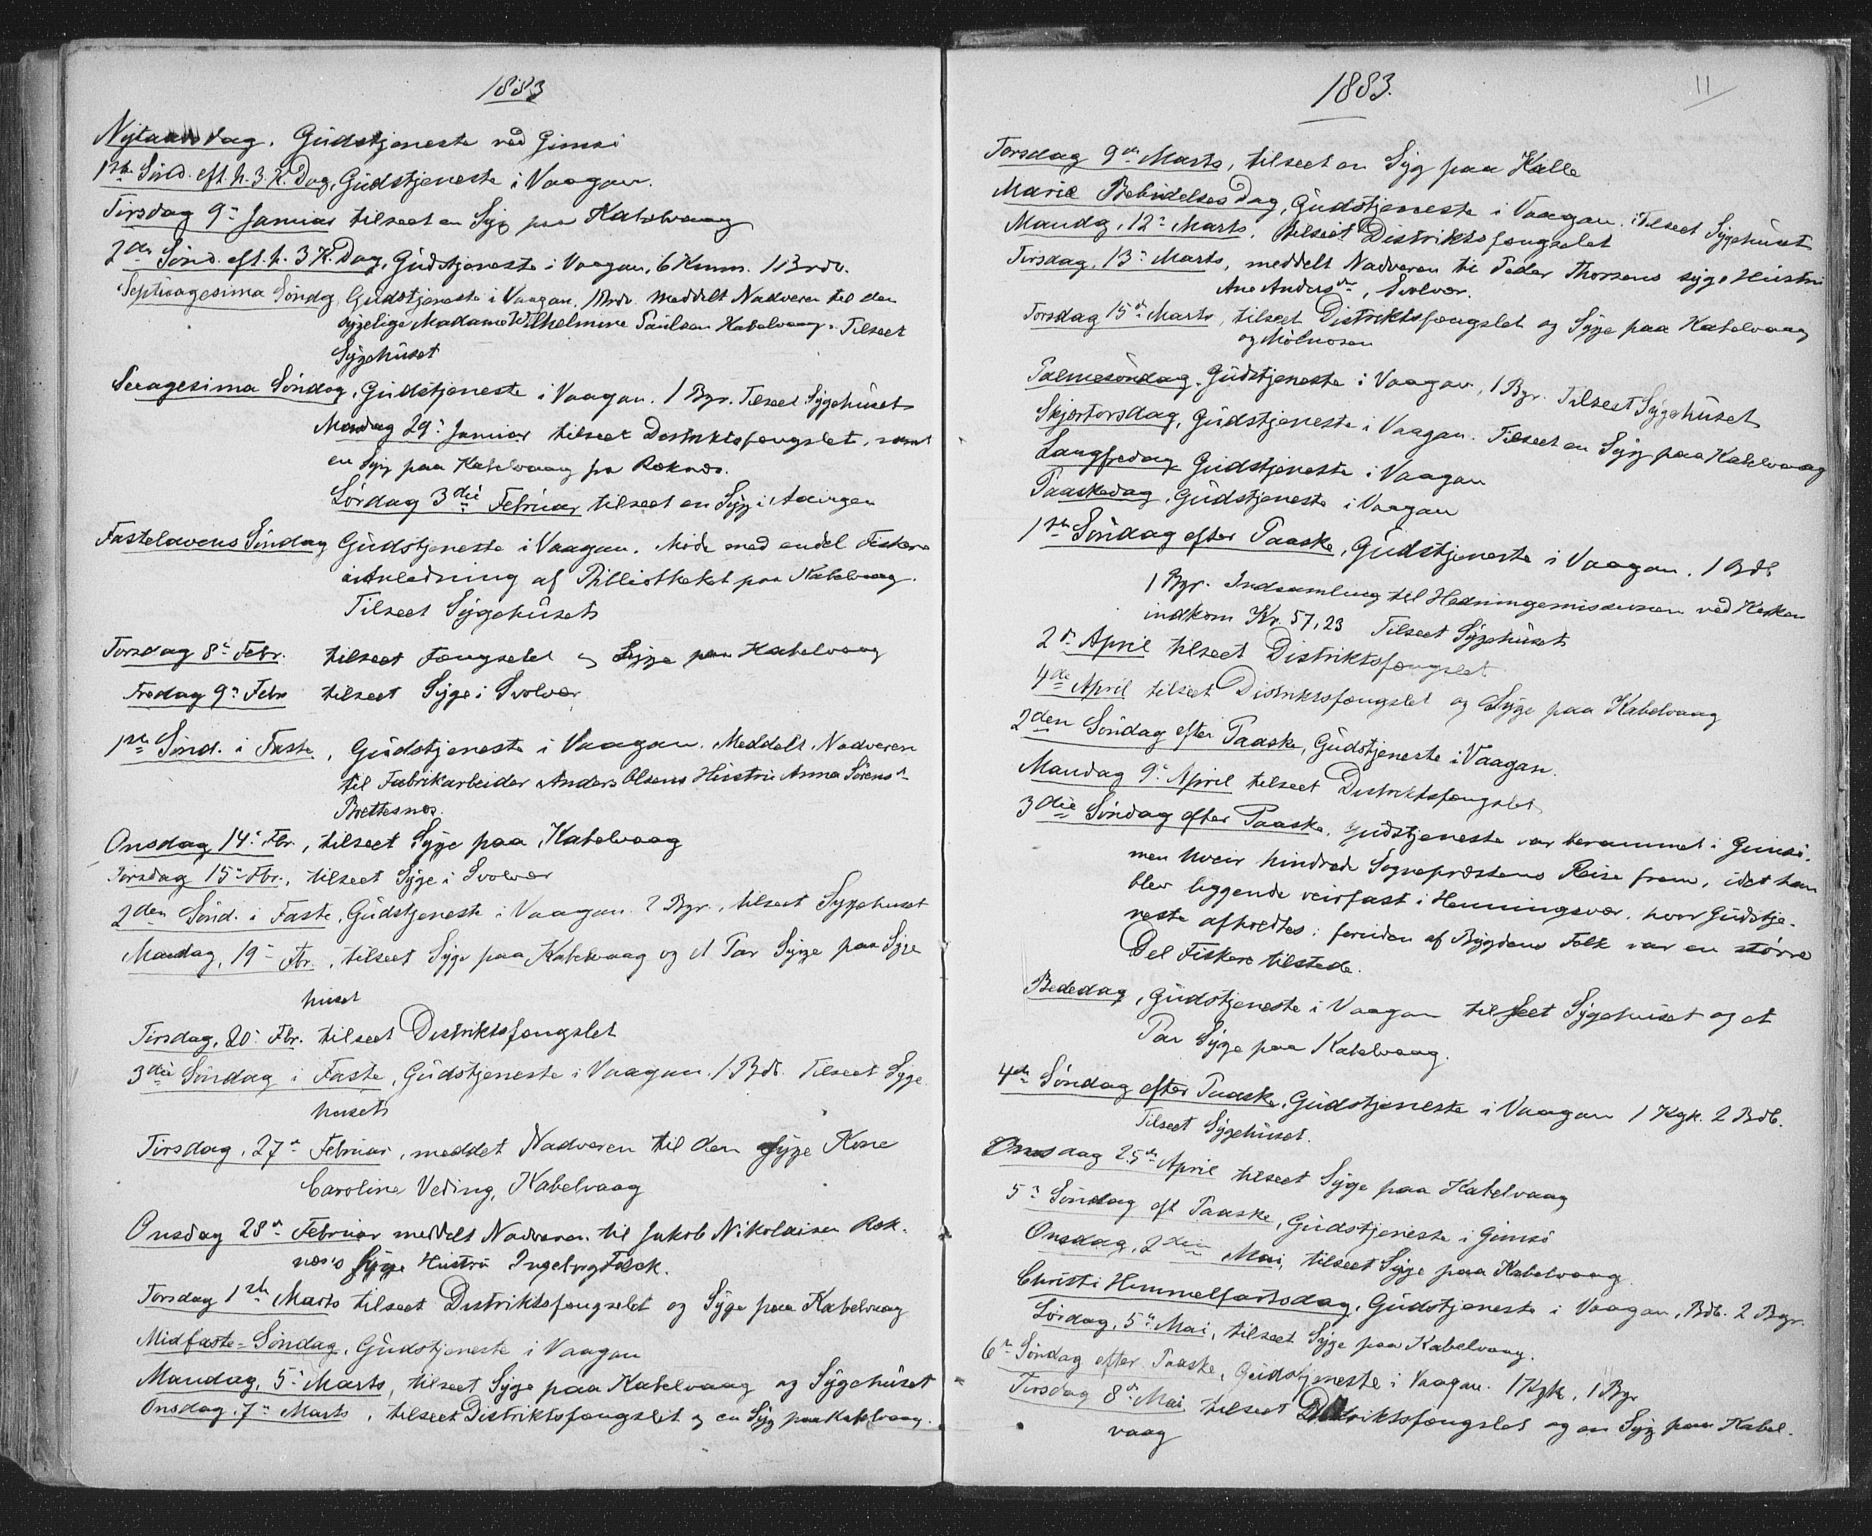 1883
Nytaarsdag. Gudstjeneste ved Gimsö
1ste Sönd. eft. h. 3 K. Dag, Gudstjeneste i Vaagan.
Tirsdag 9de Januar tilseet en Syg paa Kabelvaag
2den Sönd. eft. h. 3 K. Dag, Gudstjeneste i Vaagan, 6 Kmm. 1 Brdv.
Septuagesima Söndag, Gudstjeneste i Vaagan, 1 Brdv. meddelt Nadveren til den
sygelige Madame Wilhelmine Paulsen Kabelvaag. Tilseet
Sygehuset
Sexagesima Söndag, Gudstjeneste i Vaagan. 1 Bgr. Tilseet Sygehuset
Mandag 29de Januar tilseet Distriktsfængslet, samt
en Syg paa Kabelvaag fra Roknæs.
Lördag 3die Februar tilseet en Syg i
Fastelavens Söndag Gudstjeneste i Vaagan. Möde med endel Fiskere
i Anledning af Bibliotheket paa Kabelvaag.
Tilseet Sygehuset
Torsdag 8de Febr. tilseet Fængselet og Syge paa Kabelvaag
Fredag 9de Febr tilseet Syge i Svolvær
1ste Sönd. i Faste, Gudstjeneste i Vaagan. Meddelt Nadveren
til Fabrikarbeider Anders Olsens Hustru Anna Sörensdr
Brettesnæs.
Onsdag 14de Fbr., tilseet Syge paa Kabelvaag
Torsdag 15de Fbr., tilseet Syge i Svolvær
2den Sönd. i Faste, Gudstjeneste i Vaagan. 2 Bgr., tilseet Sygehuset
Mandag, 19de Fbr., tilseet Syge paa Kabelvaag og et Par Syge paa Syge
huset
Tirsdag, 20de Fbr. tilseet Distriktsfængslet
3die Söndag i Faste, Gudstjeneste i Vaagan. 1 Bdb. Tilseet Syge
huset
Tirsdag, 27de Februar, meddelt Nadveren til den syge Kone
Caroline Veding, Kabelvaag
Onsdag 28de Februar meddelt Nadveren til Jakob Nikolaisen Rok-
næs's syge Hustru Ingeborg Falck.
Torsdag 1ste Marts tilseet Distriktsfængselet og Syge paa Kabelvaag
Midfaste-Söndag, Gudstjeneste i Vaagan
Mandag, 5te Marts, tilseet Syge paa Kabelvaag og Sygehuset
Onsdag, 7de Marts, tilseet Distriktsfængslet og en Syg paa Kabelvaag.
1883.
11
Torsdag 9de Marts, tilseet en Syg paa Kalle
Marie Bebudelses Dag, Gudstjeneste i Vaagan. Tilseet Sygehuset
Mandg, 12te Marts. tilseet Distriktsfængselet
Tirsdag, 13de Marts, meddelt Nadveren til Peder Thorsens syge Hustru
Ane Andersdr, Svolvær.
Torsdag 15de Marts, tilseet Distriktsfængslet og Syge paa Kabelvaag
og Mölnosen
Palmesöndag. Gudstjeneste i Vaagan, 1 Bgr. Tilseet Sygehuset
Skjærtorsdag, Gudstjeneste i Vaagan. Tilseet en Syg paa Kabelvaag
Langfredag Gudstjeneste i Vaagan
Paaskedag, Gudstjeneste i Vaagan
1ste Söndag efter Paaske, Gudstjeneste i Vaagan. 1 Bdb
1 Bgr. Indsamling til Hedningemissionen ved Kirken
indkom Kr. 57,23 Tilseet Sygehuset
2den April tilseet Distriktsfængslet
4de April tilseet Distriktsfængslet og Syge paa Kabelvaag
2den Söndag efter Paaske, Gudstjeneste i Vaagan.
Mandag 9de April tilseet Distriktsfængslet
3die Söndag efter Paaske. Gudstjeneste var berammet i Gimsö.
men Uveir hindrede Sognepræstens Reise frem, idet han
blev liggende veirfast i Henningsvær. hvor Gudstje-
neste afholdtes; foruden af Bygdens Folk var en större
Del Fiskere tilstede.
Bededag, Gudstjeneste i Vaagan tilseet Sygehuset og et
Par Syge paa Kabelvaag.
4de Söndag efter Paaske, Gudstjeneste i Vaagan 1 Kgk. 2 Bdb.
Tilseet Sygehuset.
Onsdag 25de April tilseet Syge paa Kabelvaag
5te Söndag eft Paaske, Gudstjeneste i Gimsö
Onsdag, 2den Mai, tilseet Syge paa Kabelvaag.
Christi Himmelfartsdag, Gudstjeneste i Vaagan, Bdb. 2 Bgr.
Lördag, 5te Mai, tilseet Syge paa Kabelvaag.
6te Söndag efter Paaske, Gudstjeneste i Vaagan. 1 Kgk, 1 Bgr
Tirsdag 8de Mai tilseet Distriktsfængslet og en Syg paa Kabel-
vaag